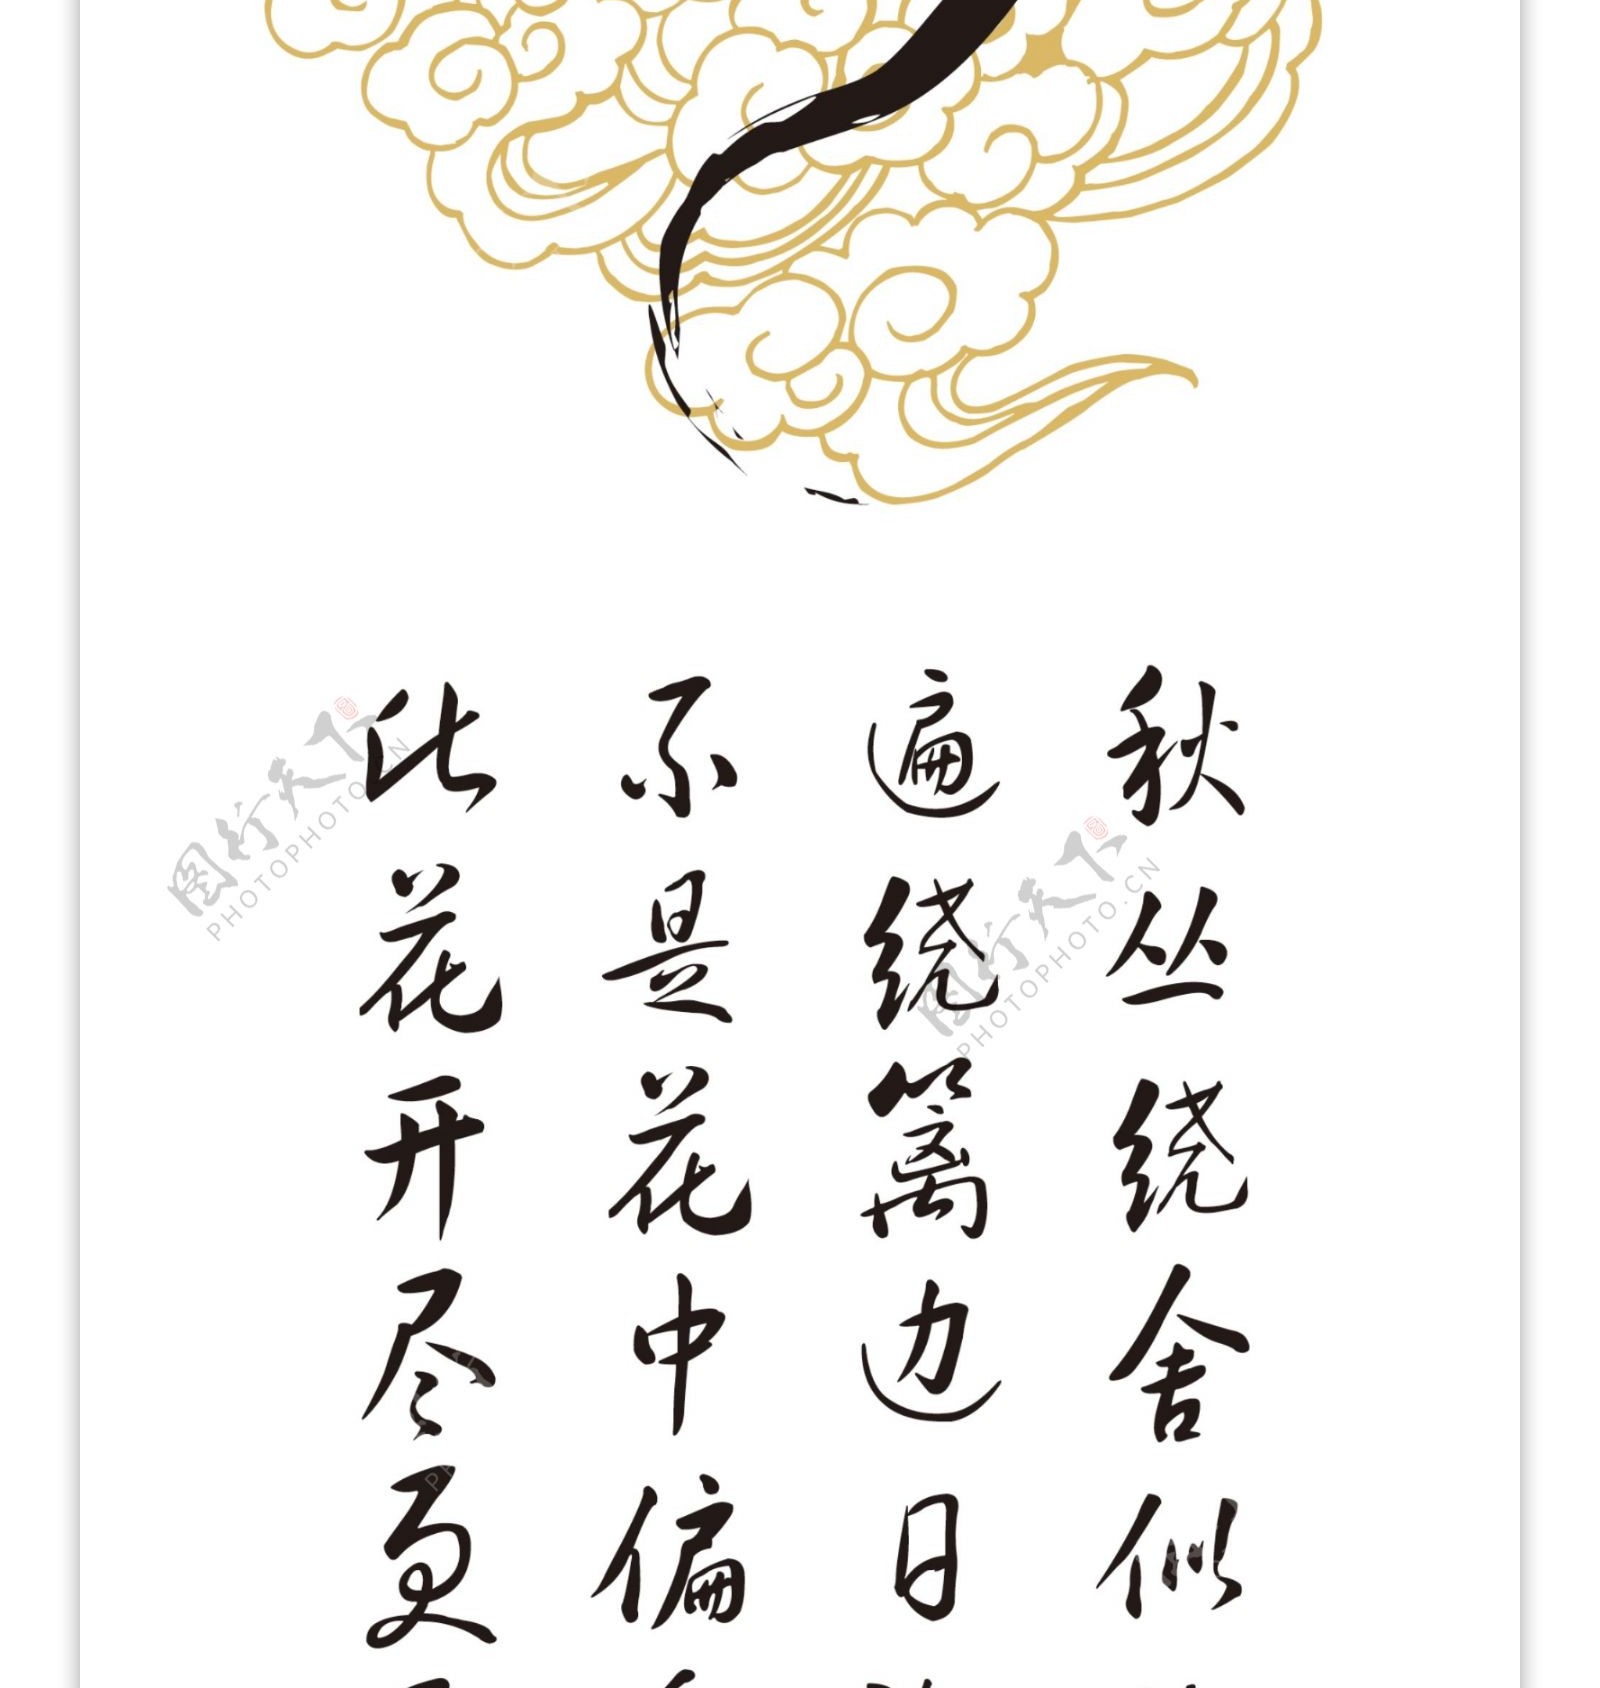 秋丛绕舍似
遍绕篱边日
不是花中偏
此花开尽更
图行天下
PHOTOPHOTO.CN
图行天下
PHOTOPHOTO.CN